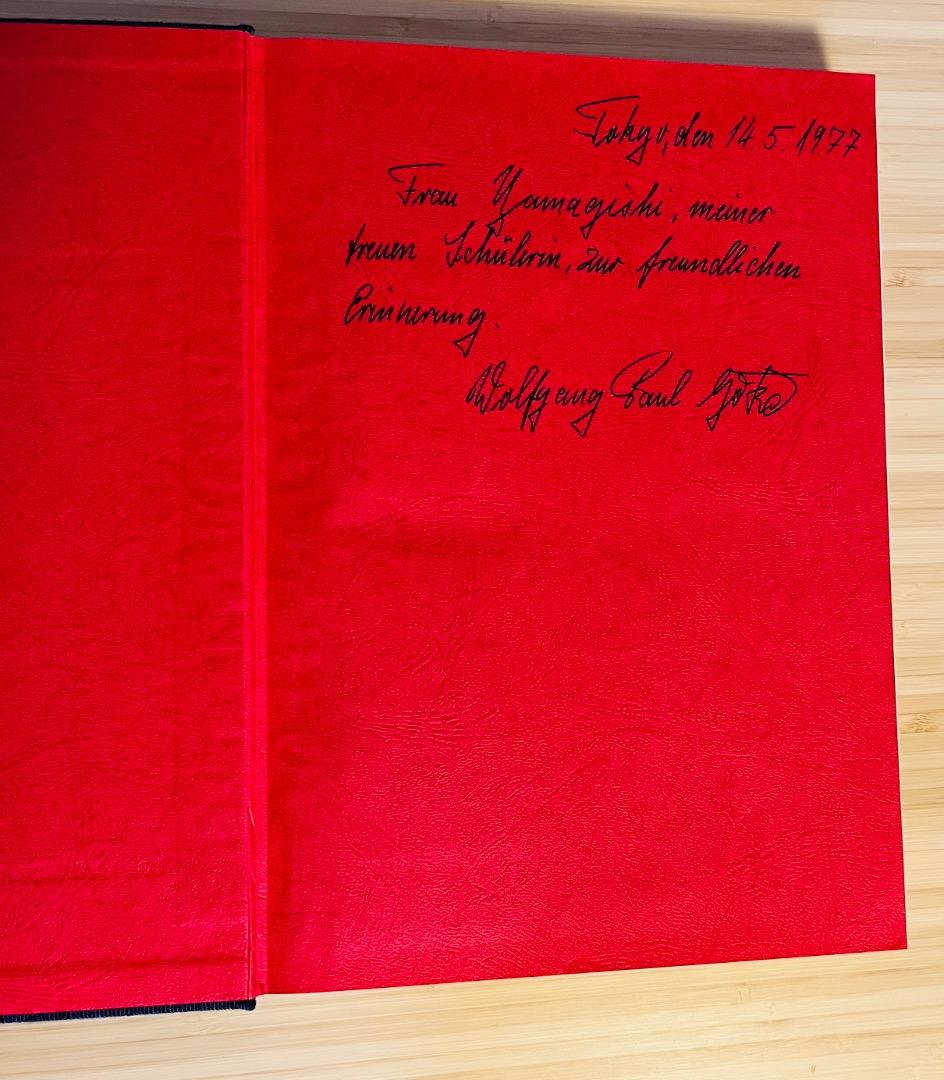 Tokyo, den 14. 5. 1977
Frau Yamagishi, meiner
treuen Schülerin, zur freundlichen
Erinnerung.
Wolfgang Paul